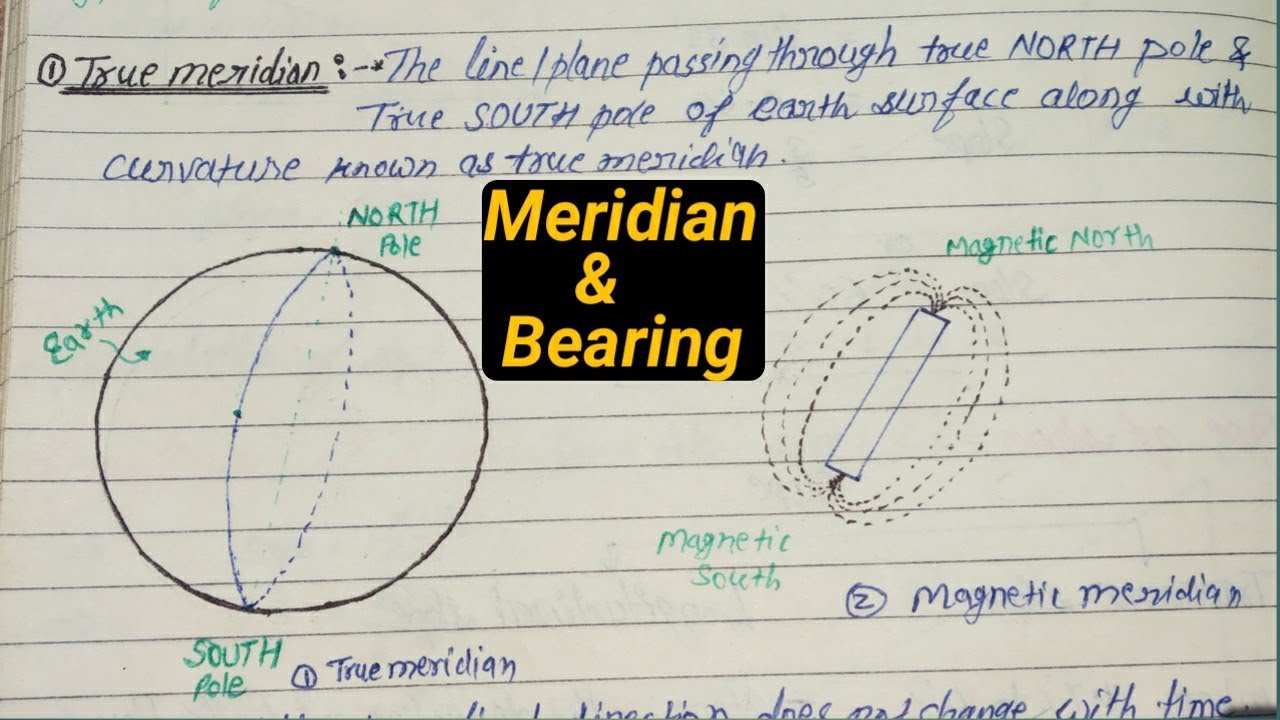 ① True meridian :-* The line/plane passing through true NORTH pole &
True SOUTH pole of earth surface along with
curvature known as true meridian.
Meridian
&
Bearing
NORTH
Pole
Earth
SOUTH
Pole
① True meridian
Magnetic North
Magnetic
South
② Magnetic meridian
direction does not change with time